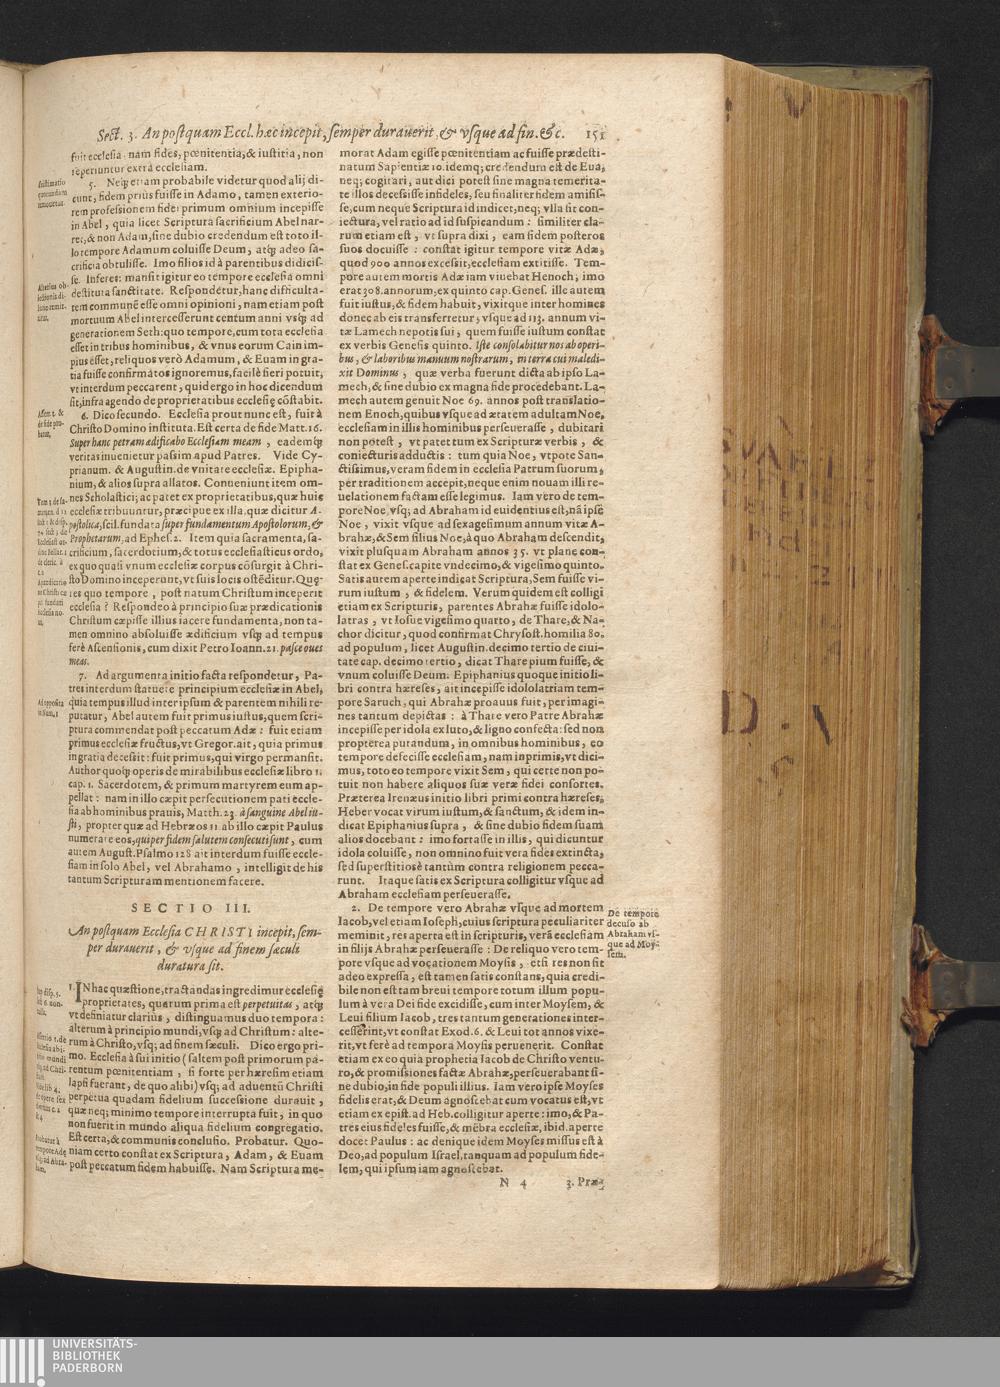 Sect. 3. An postquam Eccl. hæc incepit, semper durauerit, & vsque ad fin. &c. 151
fuit ecclesia, nam fides, pœnitentia, & iustitia, non
reperiuntur extrà ecclesiam.
5. Neq; etiam probabile videtur quod alij di-
cunt, fidem priùs fuisse in Adamo, tamen exterio-
rem professionem fidei primum omnium incepisse
in Abel, quia licet Scriptura sacrificium Abel nar-
ret, & non Adam, sine dubio credendum est toto il-
lo tempore Adamum coluisse Deum, atq; adeo sa-
crificia obtulisse. Imo filios id à parentibus didicis-
se. Inferes: mansit igitur eo tempore ecclesia omni
destituta sanctitate. Respondetur, hanc difficulta-
tem communē esse omni opinioni, nam etiam post
mortuum Abel intercesserunt centum anni vsq; ad
generationem Seth: quo tempore, cum tota ecclesia
esset in tribus hominibus, & vnus eorum Cain im-
pius esset, reliquos verò Adamum, & Euam in gra-
tia fuisse confirmatos ignoremus, facilè fieri potuit,
vt interdum peccarent, quid ergo in hoc dicendum
sit, infra agendo de proprietatibus ecclesię cōstabit.
6. Dico secundo. Ecclesia prout nunc est, fuit à
Christo Domino instituta. Est certa de fide Matt. 16.
Super hanc petram ædificabo Ecclesiam meam, eademq;
veritas inuenietur passim apud Patres. Vide Cy-
prianum. & Augustin. de vnitate ecclesiæ. Epipha-
nium, & alios supra allatos. Conueniunt item om-
nes Scholastici; ac patet ex proprietatibus, quæ huic
ecclesiæ tribuuntur, præcipue ex illa, quæ dicitur A-
postolica, scil. fundata super fundamentum Apostolorum, &
Prophetarum, ad Ephes. 2. Item quia sacramenta, sa-
crificium, sacerdotium, & totus ecclesiasticus ordo,
ex quo quasi vnum ecclesiæ corpus cōsurgit à Chri-
sto Domino inceperunt, vt suis locis ostēditur. Quę-
res quo tempore, post natum Christum inceperit
ecclesia? Respondeo à principio suæ prædicationis
Christum cœpisse illius iacere fundamenta, non ta-
men omnino absoluisse ædificium vsq; ad tempus
ferè Ascensionis, cum dixit Petro Ioann. 21. pasce oues
meas.
7. Ad argumenta initio facta respondetur, Pa-
tres interdum statuere principium ecclesiæ in Abel,
quia tempus illud inter ipsum & parentem nihili re-
putatur, Abel autem fuit primus iustus, quem scri-
ptura commendat post peccatum Adæ: fuit etiam
primus ecclesiæ fructus, vt Gregor. ait, quia primus
in gratia decessit: fuit primus, qui virgo permansit.
Author quoq; operis de mirabilibus ecclesiæ libro 1.
cap. 1. Sacerdotem, & primum martyrem eum ap-
pellat: nam in illo cœpit persecutionem pati eccle-
sia ab hominibus prauis, Matth. 23. à sanguine Abel iu-
sti, propter quæ ad Hebræos 11 ab illo cœpit Paulus
numerare eos, qui per fidem salutem consecuti sunt, cum
autem August. Psalmo 128 ait interdum fuisse eccle-
siam in solo Abel, vel Abrahamo, intelligit de his
tantum Scripturam mentionem facere.
SECTIO III.
An postquam Ecclesia CHRISTI incepit, sem-
per durauerit, & vsque ad finem sæculi
duratura sit.
1. IN hac quæstione, tractandas ingredimur ecclesię
proprietates, quarum prima est perpetuitas, atq;
vt definiatur clarius, distinguamus duo tempora:
alterum à principio mundi, vsq; ad Christum: alte-
rum à Christo, vsq; ad finem sæculi. Dico ergo pri-
mo. Ecclesia à sui initio (saltem post primorum pa-
rentum pœnitentiam, si forte per hæresim etiam
lapsi fuerant, de quo alibi) vsq; ad aduentū Christi
perpetua quadam fidelium successione durauit,
quæ neq; minimo tempore interrupta fuit, in quo
non fuerit in mundo aliqua fidelium congregatio.
Est certa, & communis conclusio. Probatur. Quo-
niam certo constat ex Scriptura, Adam, & Euam
post peccatum fidem habuisse. Nam Scriptura me-
morat Adam egisse pœnitentiam ac fuisse prædesti-
natum Sapientiæ 10. idemq; credendum est de Eua,
neq; cogitari, aut dici potest sine magna temerita-
te illos decessisse infideles, seu finaliter fidem amisis-
se, cum neque Scriptura id indicet, neq; vlla sit con-
iectura, vel ratio ad id suspicandum: similiter cla-
rum etiam est, vt supra dixi, eam fidem posteros
suos docuisse: constat igitur tempore vitæ Adæ,
quod 900 annos excessit, ecclesiam extitisse. Tem-
pore autem mortis Adæ iam viuebat Henoch; imo
erat 308. annorum, ex quinto cap. Genes. ille autem
fuit iustus, & fidem habuit, vixitque inter homines
donec ab eis transferretur, vsque ad 113. annum vi-
tæ Lamech nepotis sui, quem fuisse iustum constat
ex verbis Genesis quinto. Iste consolabitur nos ab operi-
bus, & laboribus manuum nostrarum, in terra cui maledi-
xit Dominus, quæ verba fuerunt dicta ab ipso La-
mech, & sine dubio ex magna fide procedebant. La-
mech autem genuit Noe 69. annos post translatio-
nem Enoch, quibus vsque ad ætatem adultam Noe,
ecclesiam in illis hominibus perseuerasse, dubitari
non potest, vt patet tum ex Scripturæ verbis, &
coniecturis adductis: tum quia Noe, vtpote San-
ctissimus, veram fidem in ecclesia Patrum suorum,
per traditionem accepit, neque enim nouam illi re-
uelationem factam esse legimus. Iam vero de tem-
pore Noe, vsq; ad Abraham id euidentius est, nā ipse
Noe, vixit vsque ad sexagesimum annum vitæ A-
brahæ, & Sem filius Noe, à quo Abraham descendit,
vixit plusquam Abraham annos 35. vt plane con-
stat ex Genes. capite vndecimo, & vigesimo quinto.
Satis autem aperte indicat Scriptura, Sem fuisse vi-
rum iustum, & fidelem. Verum quidem est colligi
etiam ex Scripturis, parentes Abrahæ fuisse idolo-
latras, vt Iosue vigesimo quarto, de Thare, & Na-
chor dicitur, quod confirmat Chrysost. homilia 80.
ad populum, licet Augustin. decimo tertio de ciui-
tate cap. decimo tertio, dicat Thare pium fuisse, &
vnum coluisse Deum. Epiphanius quoque initio li-
bri contra hæreses, ait incepisse idololatriam tem-
pore Saruch, qui Abrahæ proauus fuit, per imagi-
nes tantum depictas: à Thare vero Patre Abrahæ
incepisse per idola ex luto, & ligno confecta: sed non
propterea putandum, in omnibus hominibus, eo
tempore defecisse ecclesiam, nam inprimis, vt dici-
mus, toto eo tempore vixit Sem, qui certe non po-
tuit non habere aliquos suæ veræ fidei consortes.
Præterea Irenæus initio libri primi contra hæreses,
Heber vocat virum iustum, & sanctum, & idem in-
dicat Epiphanius supra, & sine dubio fidem suam
alios docebant: imo fortasse in illis, qui dicuntur
idola coluisse, non omnino fuit vera fides extincta,
sed superstitiosè tantùm contra religionem pecca-
runt. Itaque satis ex Scriptura colligitur vsque ad
Abraham ecclesiam perseuerasse.
2. De tempore vero Abrahæ vsque ad mortem
Iacob, vel etiam Ioseph, cuius scriptura peculiariter
meminit, res aperta est in scripturis, verā ecclesiam
in filijs Abrahæ perseuerasse: De reliquo vero tem-
pore vsque ad vocationem Moysis, etsi res non sit
adeo expressa, est tamen satis constans, quia credi-
bile non est tam breui tempore totum illum popu-
lum à vera Dei fide excidisse, cum inter Moysem, &
Leui filium Iacob, tres tantum generationes inter-
cesserint, vt constat Exod. 6. & Leui tot annos vixe-
rit, vt ferè ad tempora Moysis peruenerit. Constat
etiam ex eo quia prophetia Iacob de Christo ventu-
ro, & promissiones factæ Abrahæ, perseuerabant si-
ne dubio, in fide populi illius. Iam vero ipse Moyses
fidelis erat, & Deum agnoscebat cum vocatus est, vt
etiam ex epist. ad Heb. colligitur aperte: imo, & Pa-
tres eius fideles fuisse, & mēbra ecclesiæ, ibid. aperte
docet Paulus: ac denique idem Moyses missus est à
Deo, ad populum Israel, tanquam ad populum fide-
lem, qui ipsum iam agnoscebat.
De tempore
decurso ab
Abraham vs-
que ad Moy-
sem.
N 4 3. Præ-
UNIVERSITÄTS-
BIBLIOTHEK
PADERBORN